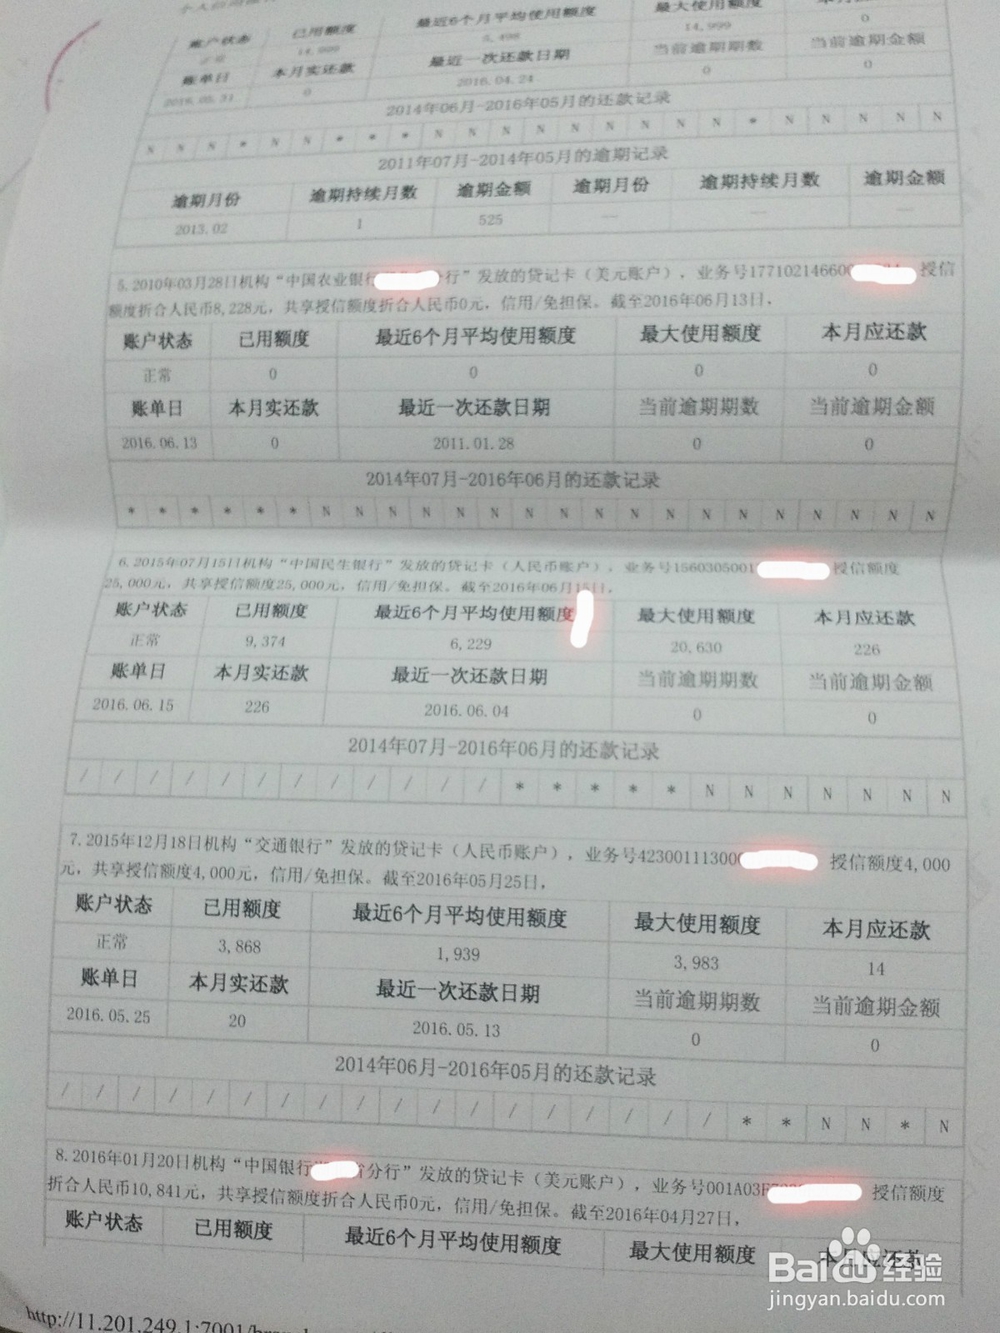 账户状态 已用额度 最近6个月平均使用额度 最大使用额度
14,999 5,498 14,999 0
账单日 本月实还款 最近一次还款日期 当前逾期期数 当前逾期金额
2016.05.31 0 2016.04.24 0 0
2014年06月-2016年05月的还款记录
N N N * N N * * * N N N N N N N N N * N N N N N
2011年07月-2014年05月的逾期记录
逾期月份 逾期持续月数 逾期金额 逾期月份 逾期持续月数 逾期金额
2013.02 1 525 — — —
5.2010年03月28日机构“中国农业银行 分行”发放的贷记卡（美元账户），业务号1771021466 授信
额度折合人民币8,228元，共享授信额度折合人民币0元，信用/免担保。截至2016年06月13日，
账户状态 已用额度 最近6个月平均使用额度 最大使用额度 本月应还款
正常 0 0 0 0
账单日 本月实还款 最近一次还款日期 当前逾期期数 当前逾期金额
2016.06.13 0 2011.01.28 0 0
2014年07月-2016年06月的还款记录
* * * * * * N N N N N N N N N N N N N N N N N N
6.2015年07月15日机构“中国民生银行”发放的贷记卡（人民币账户），业务号1560305001 授信额度
25,000元，共享授信额度25,000元，信用/免担保。截至2016年06月15日，
账户状态 已用额度 最近6个月平均使用额度 最大使用额度 本月应还款
正常 9,374 6,229 20,630 226
账单日 本月实还款 最近一次还款日期 当前逾期期数 当前逾期金额
2016.06.15 226 2016.06.04 0 0
2014年07月-2016年06月的还款记录
/ / / / / / / / / / / / * * * * * N N N N N N N
7.2015年12月18日机构“交通银行”发放的贷记卡（人民币账户），业务号423001113000 授信额度4,000
元，共享授信额度4,000元，信用/免担保。截至2016年05月25日，
账户状态 已用额度 最近6个月平均使用额度 最大使用额度 本月应还款
正常 3,868 1,939 3,983 14
账单日 本月实还款 最近一次还款日期 当前逾期期数 当前逾期金额
2016.05.25 20 2016.05.13 0 0
2014年06月-2016年05月的还款记录
/ / / / / / / / / / / / / / / / / / * * N N * N
8.2016年01月20日机构“中国银行 省分行”发放的贷记卡（美元账户），业务号001A03 授信额度
折合人民币10,841元，共享授信额度折合人民币0元，信用/免担保。截至2016年04月27日，
账户状态 已用额度 最近6个月平均使用额度 最大使用额度 本月应还款
Baidu 经验
jingyan.baidu.com
http://11.201.249.1:7001/